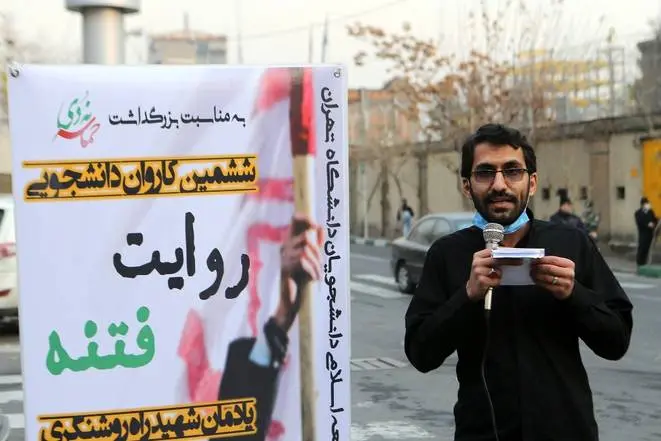 به مناسبت بزرگداشت
حماسه ۹ دی
ششمین کاروان دانشجویی
روایت
فتنه
یادمان شهید راه روشنگری
عه اسلامی دانشجویان دانشگاه تهران